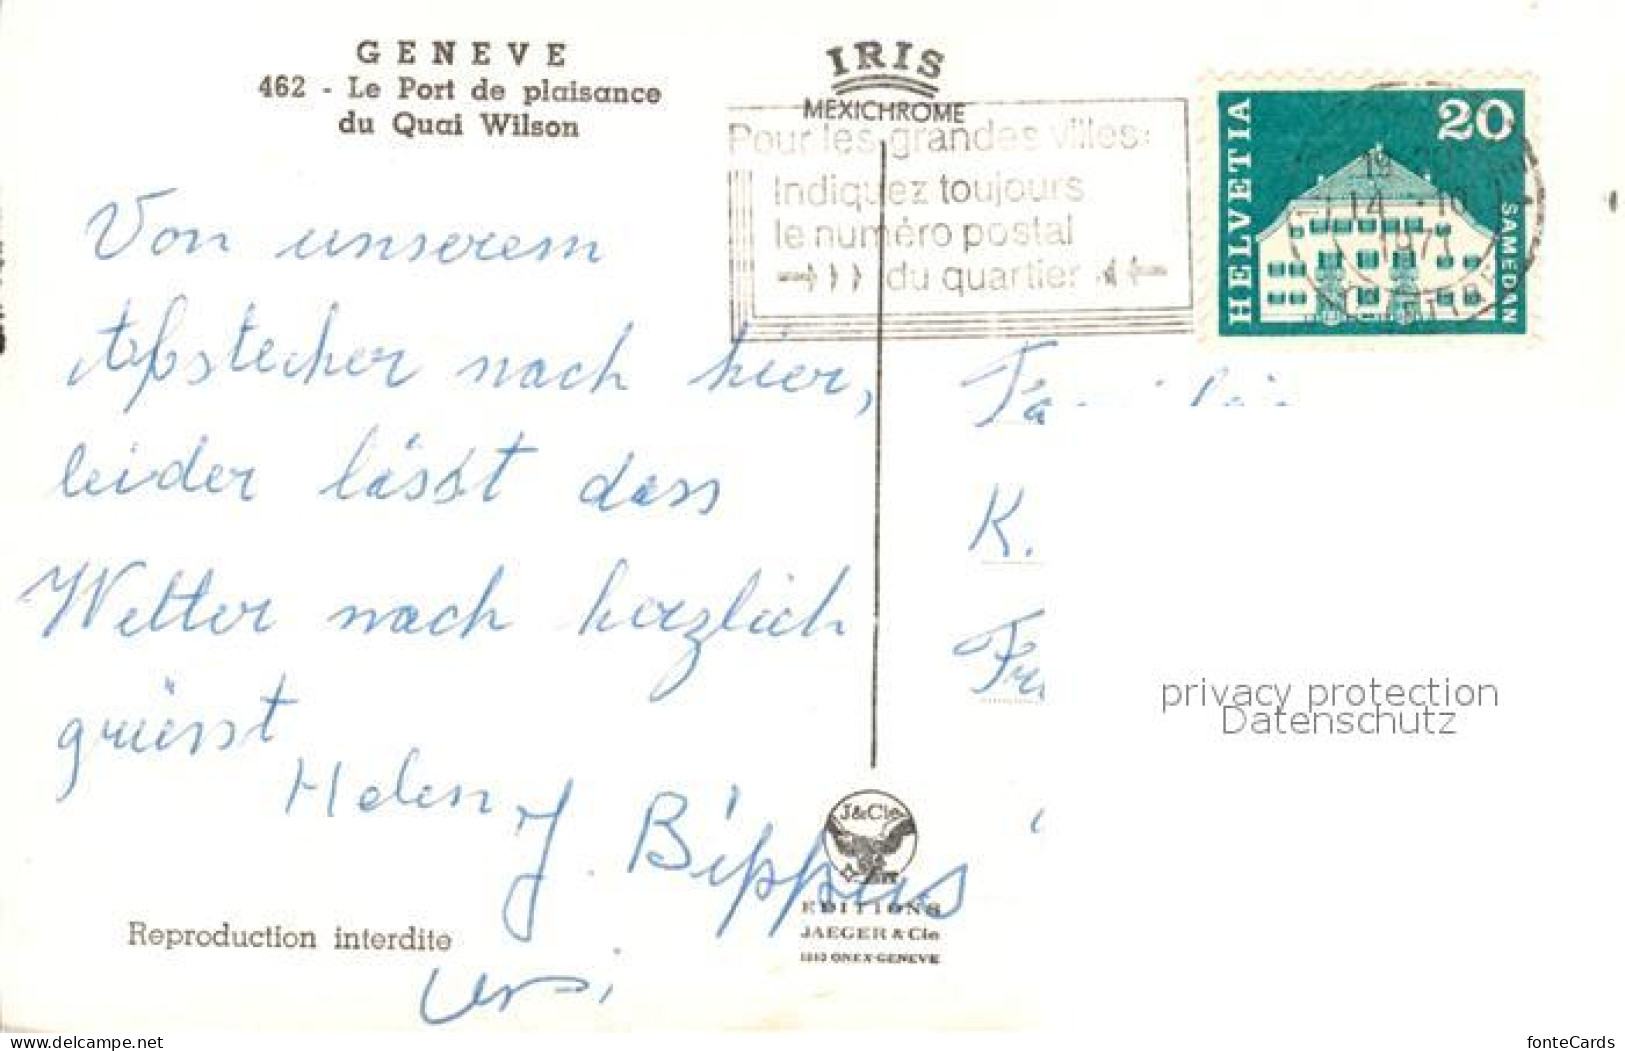 GENEVE
462 - Le Port de plaisance
du Quai Wilson
IRIS
MEXICHROME
Pour les grandes villes:
Indiquez toujours
le numéro postal
du quartier
HELVETIA
20
SAMEDAN
19
14 - 10
1971
Von unserem
Abstecher nach hier,
leider lässt dass
Wetter nach herzlich
grüsst
Helen J. Bippus
Ursi
K.
J&Cie
EDITIONS
JAEGER & Cie
1213 ONEX-GENEVE
Reproduction interdite
privacy protection
Datenschutz
www.delcampe.net
fonteCards